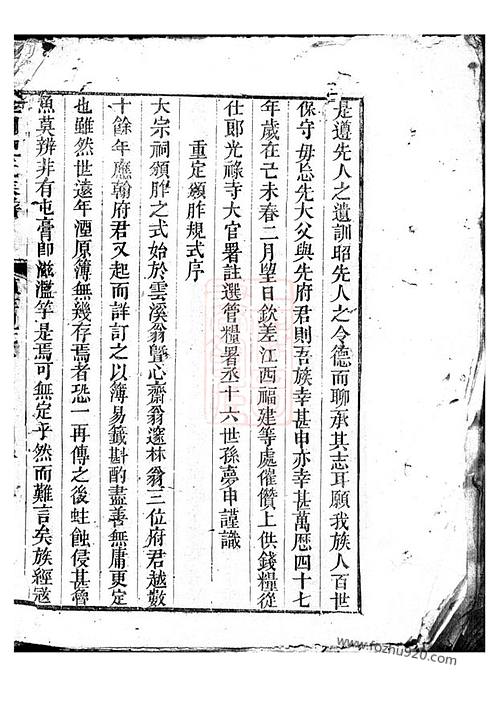 是遵先人之遺訓昭先人之令德而聊承其志耳願我族人百世
保守毋忽先大父與先府君則吾族幸甚申亦幸甚萬曆四十七
年歲在己未春二月望日欽差江西福建等處催儹上供錢糧從
仕郎光祿寺大官署註選管糧署丞十六世孫夢申謹識
重定頒胙規式序
大宗祠頒胙之式始於雲溪翁曁心齋翁邃林翁三位府君越數
十餘年應翰府君又起而詳訂之以簿易籤斟酌盡善無庸更定
也雖然世遠年湮原簿無幾存焉者恐一再傳之後蛀蝕侵甚魯
魚莫辨非有屯膏卽滋濫竽是焉可無定乎然而難言矣族經寇
www.fozhu920.com